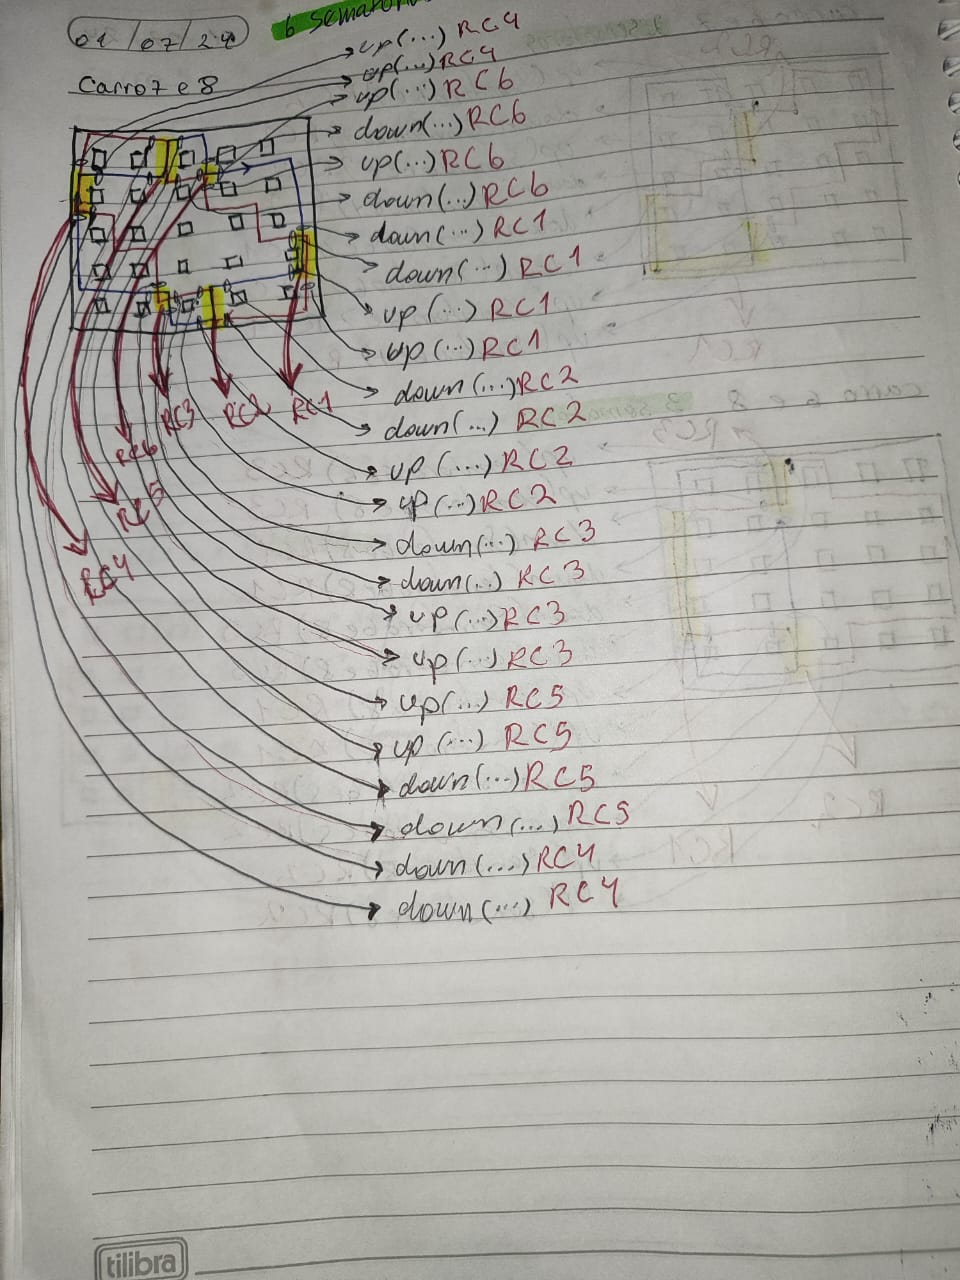 01/07/24
6 semáforos
Carro 7 e 8
up(...) RC4
up(...) RC4
up(...) RC6
down(...) RC6
up(...) RC6
down(...) RC6
down(...) RC1
down(...) RC1
up(...) RC1
up(...) RC1
down(...) RC2
down(...) RC2
up(...) RC2
up(...) RC2
down(...) RC3
down(..) RC3
up(...) RC3
up(...) RC3
up(...) RC5
up(...) RC5
down(...) RC5
down(...) RC5
down(...) RC4
down(...) RC4
RC3 RC2 RC1
RC6
RC5
RC4
tilibra